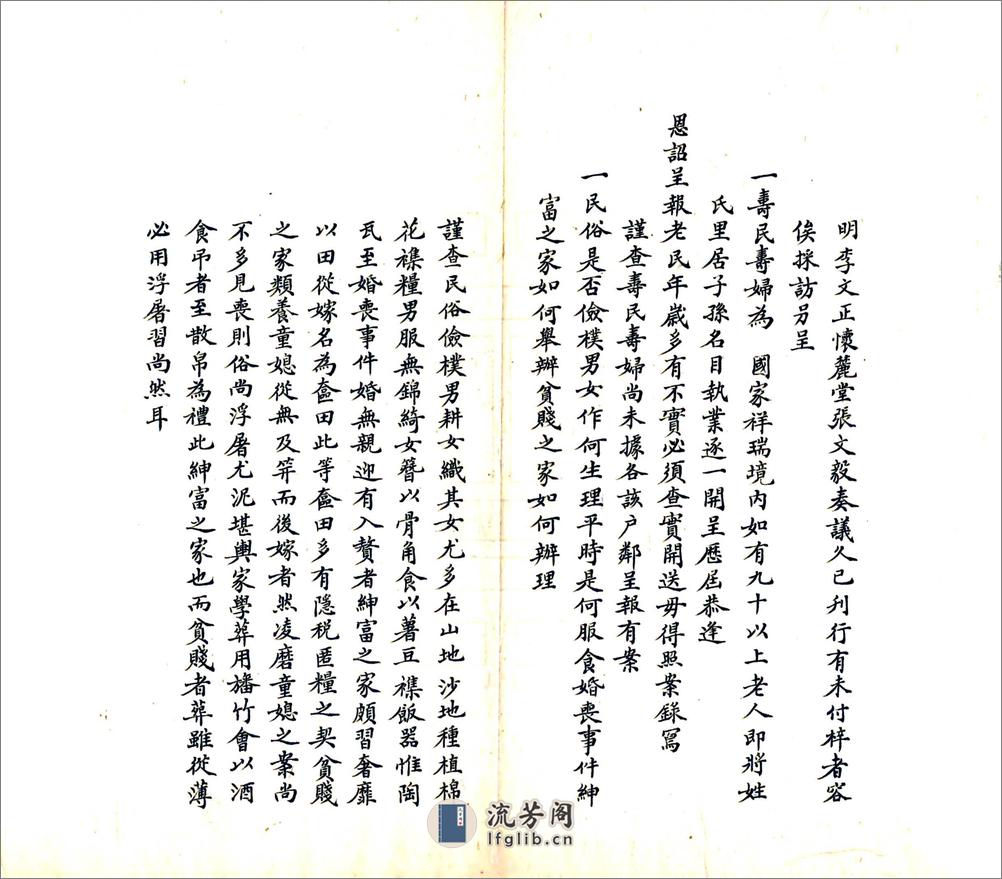 明李文正懷麓堂張文毅奏議久已刊行有未付梓者容
俟採訪另呈
一壽民壽婦為　國家祥瑞境內如有九十以上老人即將姓
氏里居子孫名目執業逐一開呈歷屆恭逢
恩詔呈報老民年歲多有不實必須查實開送毋得照案錄寫
謹查壽民壽婦尚未據各該户鄰呈報有案
一民俗是否儉樸男女作何生理平時是何服食婚喪事件紳
富之家如何舉辦貧賤之家如何辦理
謹查民俗儉樸男耕女織其女尤多在山地沙地種植棉
花襍糧男服無錦綺女簪以骨角食以薯豆襍飯器惟陶
瓦至婚喪事件婚無親迎有入贅者紳富之家頗習奢靡
以田從嫁名為奩田此等奩田多有隱稅匿糧之契貧賤
之家類養童媳從無及笄而後嫁者然凌磨童媳之案尚
不多見喪則俗尚浮屠尤泥堪輿家學葬用旛竹會以酒
食弔者至散帛為禮此紳富之家也而貧賤者葬雖從薄
必用浮屠習尚然耳
流芳阁
lfglib.cn